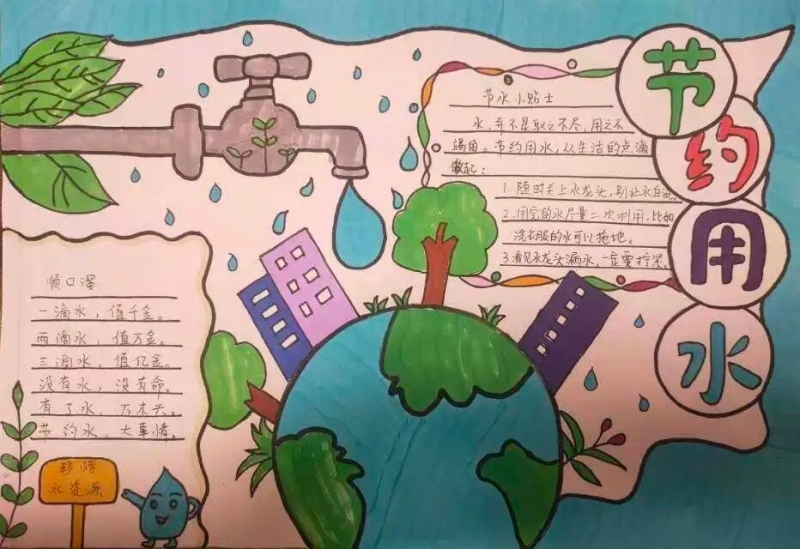 节约用水
节水小贴士
水，并不是取之不尽，用之不
竭的。节约用水，从生活的点滴
做起：
1. 随时关上水龙头，别让水白流
2. 用完的水尽量二次利用，比如
洗衣服的水可以拖地。
3. 看见水龙头漏水，一定要拧紧。
顺口溜
一滴水，值千金。
两滴水，值万金。
三滴水，值亿金。
没有水，没有命。
有了水，万木兴。
节约水，大事情。
珍惜
水资源